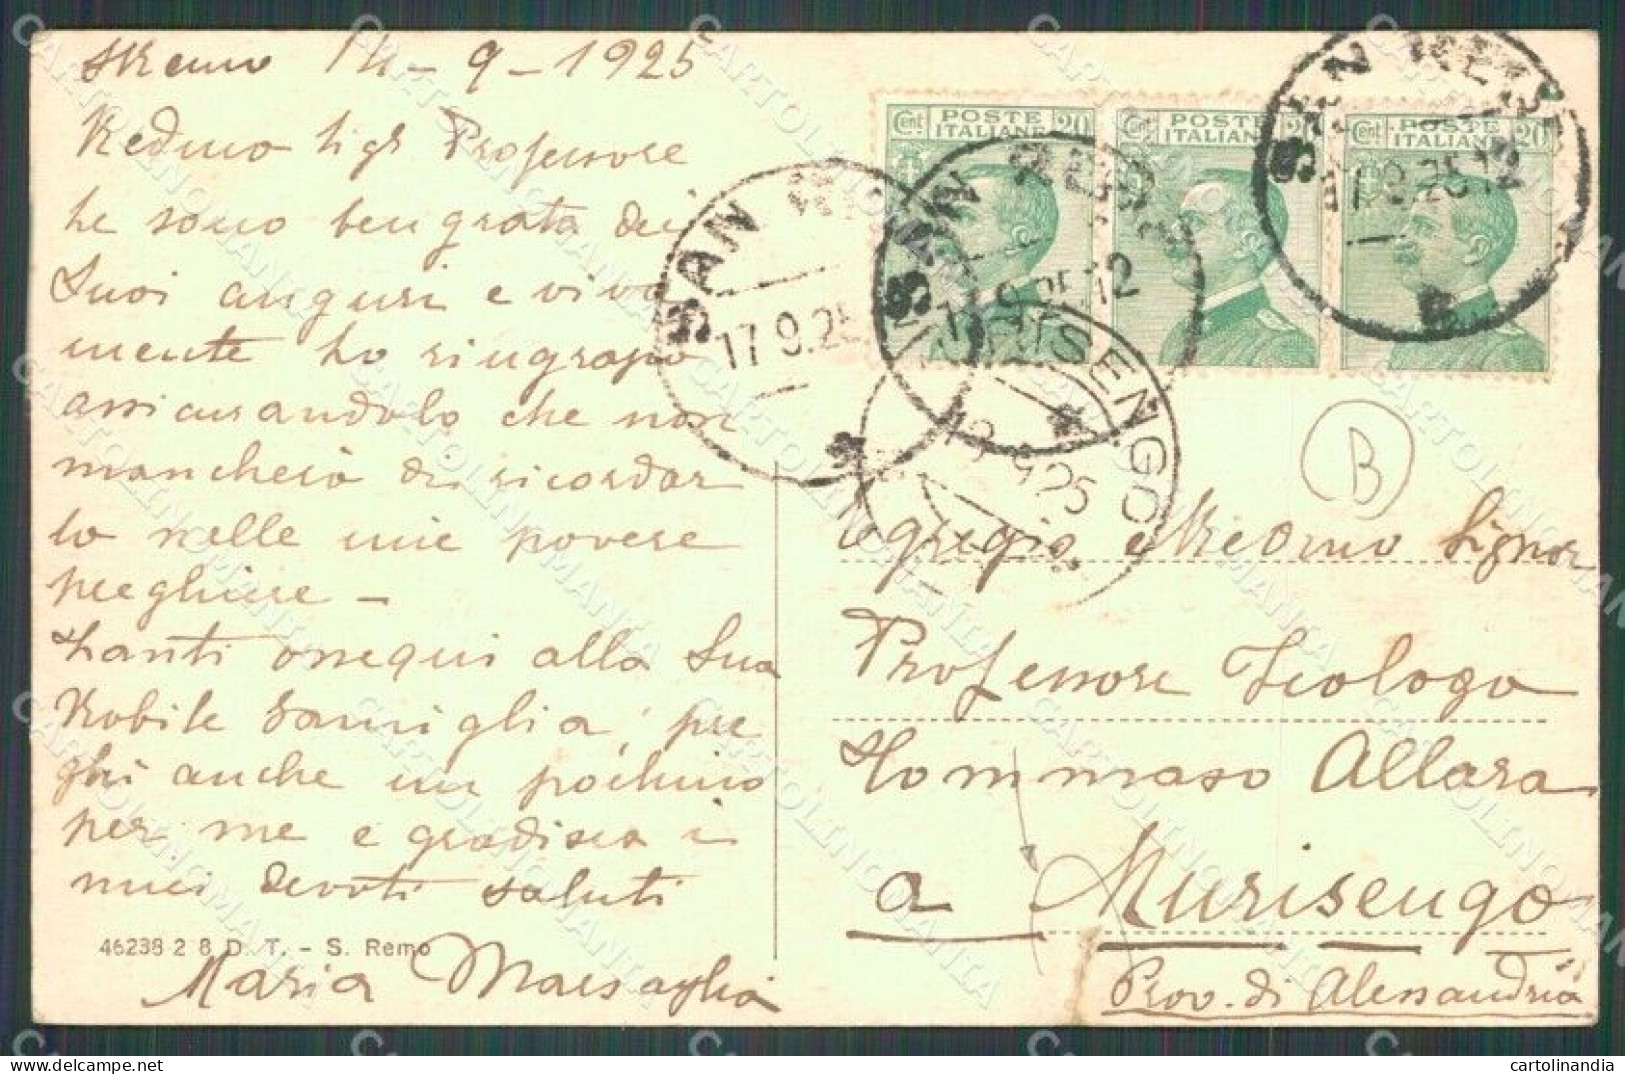 SRemo 14-9-1925
Redmo Sigr Professore
Le sono ben grata dei
Suoi auguri e viva
mente La ringrazio
assicurandola che non
mancherò di ricordar
la nelle mie povere
preghiere -
Tanti ossequi alla Sua
Nobile Famiglia, pre
ghi anche un pochino
per me e gradisca i
miei devoti saluti
Maria Marsaglia
46238 2 8 D. T. - S. Remo
Cent POSTE ITALIANE 20
Cent POSTE ITALIANE 2
Cent POSTE ITALIANE 20
SAN REMO
17.9.25
SAN REMO
17.9.25.12
SAN REMO
17.9.25.12
MURISENGO
19.9.25
B
Egregio e Redmo Signor
Professore Teologo
Tommaso Allara
a Murisengo
Prov. di Alessandria
CARTOLINOMANIA
cartolinandia